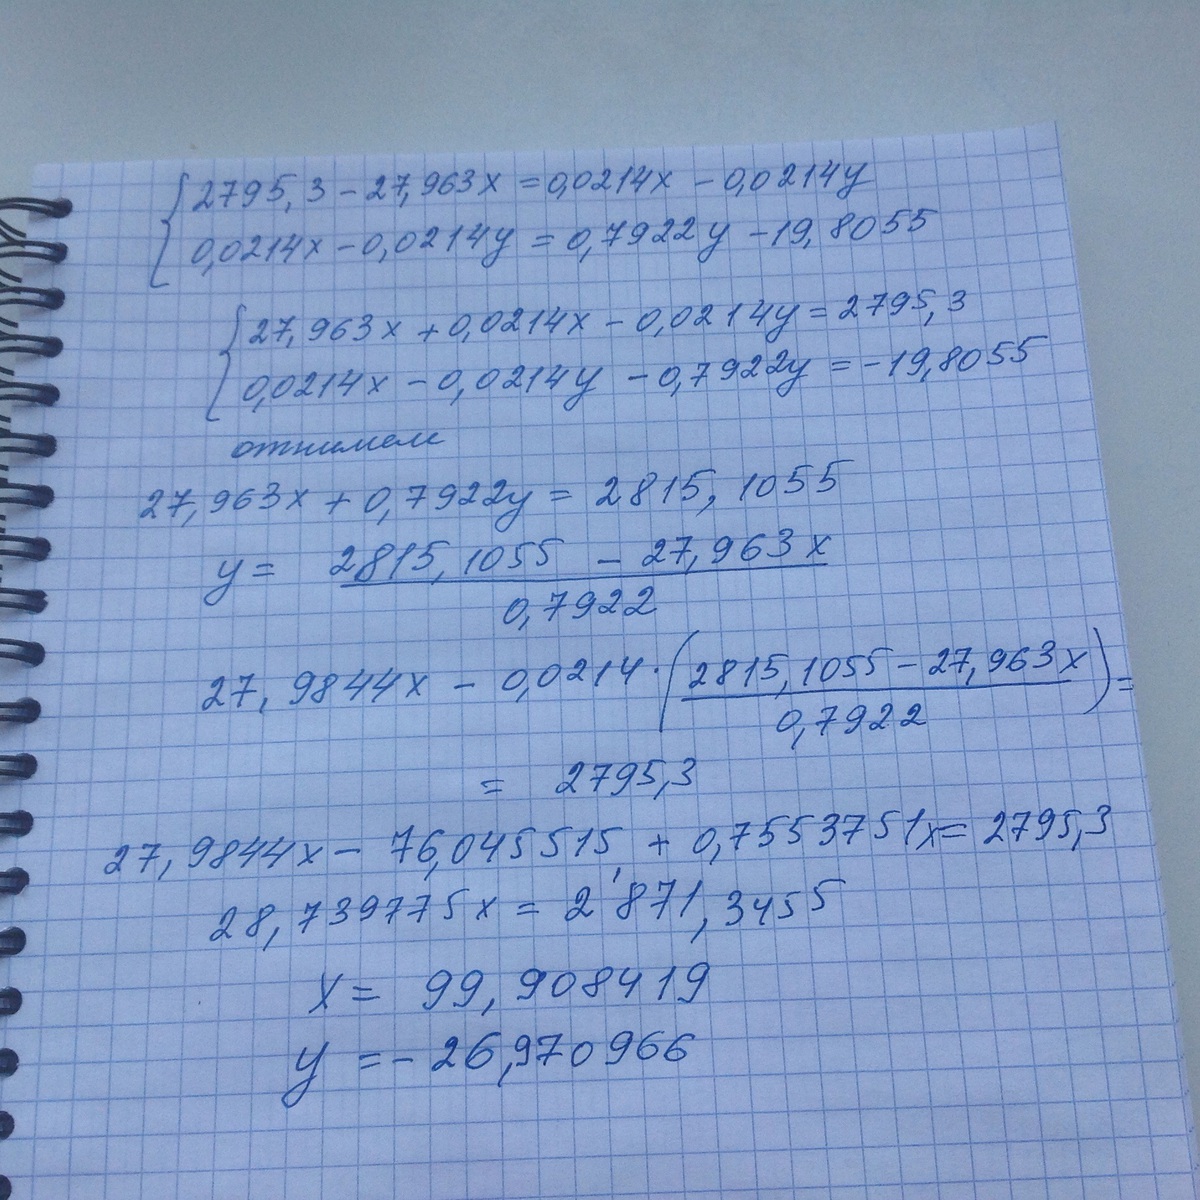 {2795,3 - 27,963x = 0,0214x - 0,0214y
0,0214x - 0,0214y = 0,7922y - 19,8055
{27,963x + 0,0214x - 0,0214y = 2795,3
0,0214x - 0,0214y - 0,7922y = -19,8055
отнимем
27,963x + 0,7922y = 2815,1055
y = 2815,1055 - 27,963x
0,7922
27,9844x - 0,0214 · (2815,1055 - 27,963x) =
0,7922
= 2795,3
27,9844x - 76,045515 + 0,7553751x = 2795,3
28,739775x = 2'871,3455
x = 99,908419
y = -26,970966